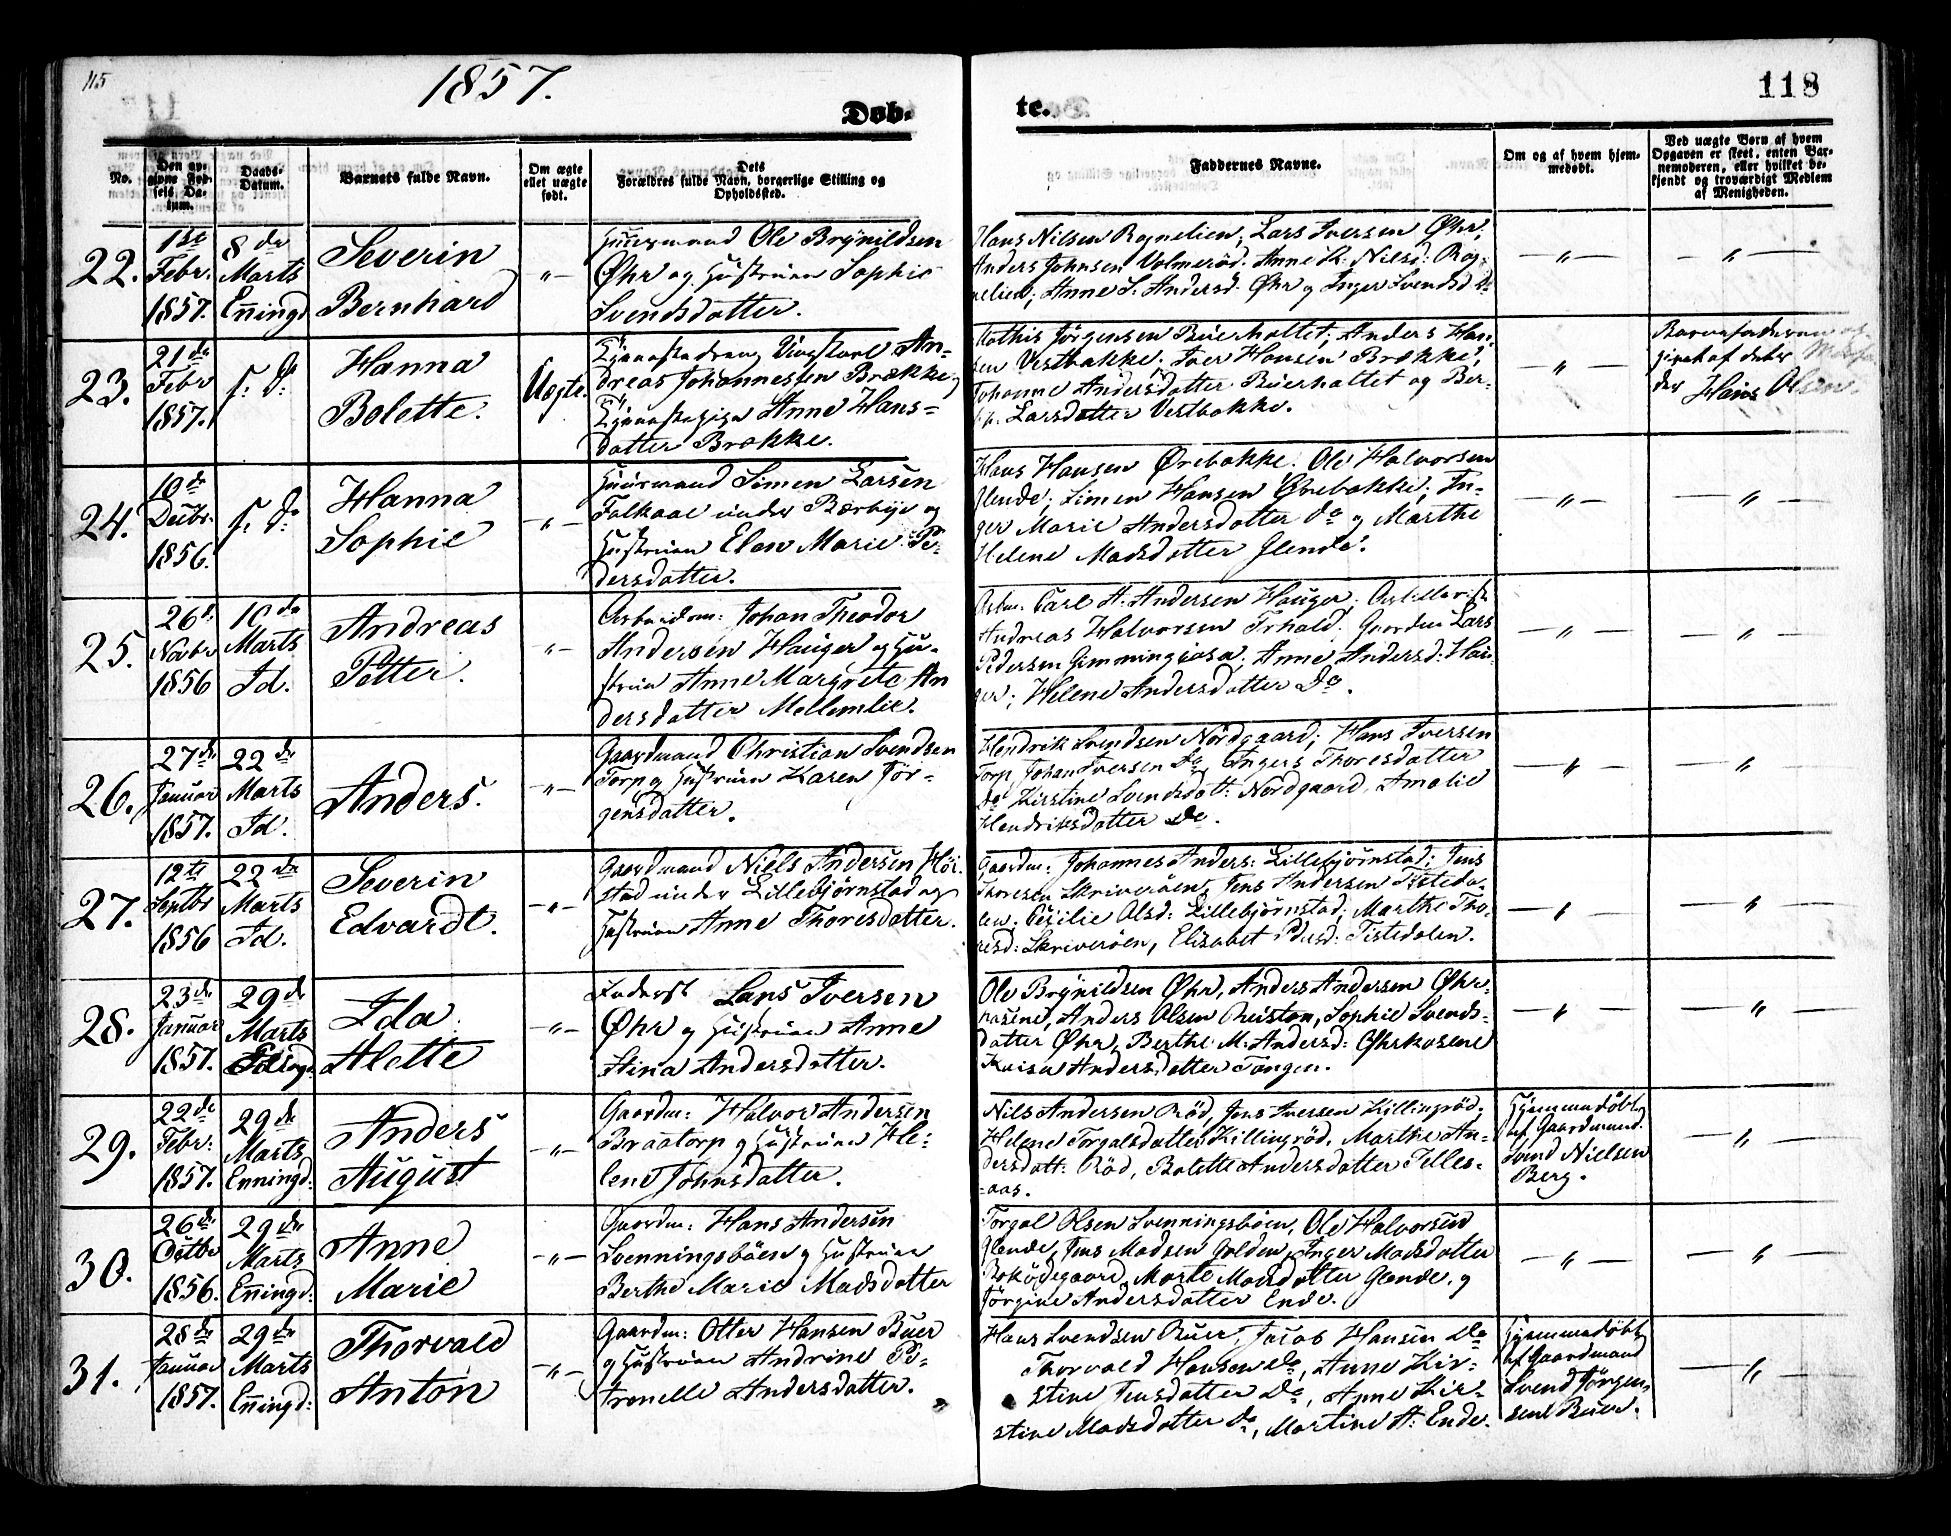 115
1857.
118
Døb-
te.
No.
Den op-
givne Fød-
sels Da-
tum.
Daabs-
Datum.
Barnets fulde Navn.
Om ægte
ellet uægte
født.
Dets
Forældres fulde Navn, borgerlige Stilling og
Opholdssted.
Faddernes Navne.
Om og af hvem hjem-
medøbt.
Ved uægte Børn af hvem
Opgaven er skeet, enten Bar-
nemoderen, eller hvilket be-
kjendt og troværdigt Medlem
af Menigheden.
22.
1ste
Febr.
1857.
8de
Marts
Enningd
Severin
Bernhard
"
Huusmand Ole Brynildsen
Øhr og Hustruen Sophie
Svendsdatter.
Hans Nilsen Rognelien, Lars Iversen Øhr,
Anders Johnsen Volmerød. Anne K. Nilsd: Rog-
nelien, Anne S. Andersd: Øhr og Inger Svendsd Do
"
"
23.
21de
Febr
1857.
s. d.
Hanna
Bolette.
Uægte.
Andreas Johannesen Brække og
Anne Hans-
datter Brække.
Mathis Jørgensen Buerhaltet, Anders Han-
sen Vestbakke, Iver Hansen Brække,
Johanne Andersdatter Buerhaltet og Ber-
the Larsdatter Vestbakke.
"
Barnefaderen
Hans Olsen.
24.
10de
Decbr.
1856.
s. d.
Hanna
Sophie
"
Huusmand Simen Larsen
Falkaae under Bærbye og
Hustruen Elen Marie Pe-
dersdatter.
Hans Hansen Ørebakke. Ole Halvorsen
Glende, Simen Hansen Ørebakke, In-
ger Marie Andersdatter do og Marthe
Helene Madsdatter Glende.
"
"
25.
26de
Novbr
1856
10de
Marts
Id.
Andreas
Petter.
"
Arbeidsm: Johan Theodor
Andersen Hauger og Hu-
struen Anne Margrete An
dersdatter Mellemlie.
Arbm. Carl A. Andersen Hauger,
Andreas Halvorsen Trhald, Lars
Pedersen Gimmingjasa, Anne Andersd: Hau-
ger, Helene Andersdatter Do.
"
"
26.
27de
Januar
1857.
22de
Marts
Id.
Anders.
"
Gaardmand Christian Svendsen
Torp og Hustruen Karen Jør-
gensdatter.
Hendrik Svendsen Nordgaard, Hans Iversen
Torp, Johan Iversen Do, Ingers Thoresdatter
Do Kirstine Svendsdatt: Nordgaard, Amalie
Hendriksdatter Do.
"
"
27.
12te
Septbr
1856
22de
Marts
Id.
Severin
Edvardt.
"
Gaardmand Niels Andersen Høi-
stad under Lillebjørnstad og
Hustruen Anne Thoresdatter.
Gaardm: Johannes Anders: Lillebjørnstad, Jens
Thoresen Skriverøen, Jens Andersen Tisteda-
len, Cecilie Olsd: Lillebjørnstad, Marthe Tho-
resd: Skriverøen, Elisabet Pedersd: Tistedalen.
"
"
28.
23de
Januar
1857.
29de
Marts
Ida
Alette
"
Inderst Lars Iversen
Øhr og Hustruen Anne
Stina Andersdatter.
Ole Brynildsen Øhr, Anders Andersen Øhr-
kasene, Anders Olsen Reistan, Sophie Svends-
datter Øhr, Berthe M. Andersd: Øhrkasene
Kaisa Andersdatter Tangen.
"
"
29.
22de
Febr:
1857.
29de
Marts
Enningd:
Anders
August
"
Gaardm: Halvor Andersen
Braatorp og Hustruen He-
lene Johnsdatter.
Nils Andersen Rød, Jens Iversen Killingrød,
Helene Torgalsdatter Killingrød, Marthe An-
dersdatt: Rød, Bolette Andersdatter Telles-
aas.
Hjemmedøbt
af Gaardmand
Svend Nielsen
Berg.
"
30.
26de
Octbr
1856.
29de
Marts
Enningd:
Anne
Marie
"
Gaardm: Hans Andersen
Svenningsbøen og Hustruen
Berthe Marie Madsdatter
Torgal Olsen Svenningsbøen, Ole Halvorsen
Glende, Jens Madsen Golden, Inger Madsdatter
Bokødegaard, Marte Madsdatter Glende, og
Jørgine Andersdatter Ende.
"
"
31.
28de
Januar
1857.
29de
Marts
Enningd:
Thorvald
Anton
"
Gaardm: Otter Hansen Buer
og Hustruen Andrine Pe-
tronelle Andersdatter.
Hans Svendsen Buer, Jacob Hansen Do
Thorvald Hansen do, Anne Kir-
stine Jensdatter do, Anne Kir-
stine Madsdatter do, Martine A: Ende.
Hjemmedøbt
af Gaardmand
Svend Jørgen-
sen Buer.
"